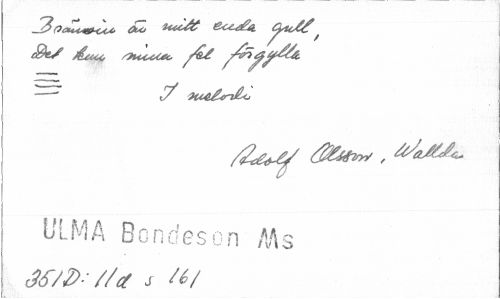 Brännvin är mitt enda gull,
Det kan mina fel förgylla
I melodi
Adolf Olsson, Wallda
ULMA Bondeson Ms
351D: 11d s 161